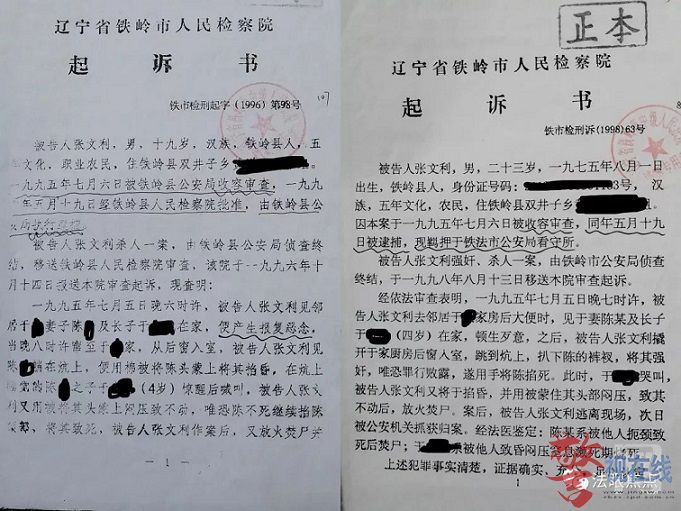 辽宁省铁岭市人民检察院
起诉书
铁市检刑起字(1996)第98号
107
被告人张文利,男,十九岁,汉族,铁岭县人,五
年文化,职业农民,住铁岭县双井子乡
一九九五年七月六日被铁岭县公安局收容审查,一九九
年五月十九日经铁岭县人民检察院批准,由铁岭县公
安局执行逮捕。
被告人张文利杀人一案,由铁岭县公安局侦查终
结,移送铁岭县人民检察院审查,该院于一九九六年十
月十四日报送本院审查起诉,现查明:
一九九五年七月五日晚六时许,被告人张文利见邻
居于 妻子陈 及长子于 在家,便产生报复恶念,
当晚八时许窜至于 家,从后窗入室,被告人张文利见
陈 躺在炕上,便用棉被将陈头蒙上将其掐昏,在炕上
睡觉的陈 之子于 (4岁)惊醒后喊叫,被告人张文
利又用被将其头蒙上闷压致不动,唯恐陈不死继续掐陈
颈部,将其致死,被告人张文利作案后,又放火焚尸并
1
正本
辽宁省铁岭市人民检察院
起诉书
铁市检刑诉(1998)63号
被告人张文利,男,二十三岁,一九七五年八月一日
出生,铁岭县人,身份证号码: 号,汉
族,五年文化,农民,住铁岭县双井子乡
因本案于一九九五年七月六日被收容审查,同年五月十九
日被逮捕,现羁押于铁法市公安局看守所。
被告人张文利强奸、杀人一案,由铁岭市公安局侦查
终结,于一九九八年八月十三日移送本院审查起诉。
经依法审查表明,一九九五年七月五日晚七时许,被
告人张文利去邻居于 家房后大便时,见于妻陈某及长子
于 (四岁)在家,顿生歹意,之后,被告人张文利撬
开于家厨房后窗入室,跳到炕上,扒下陈的裤衩,将其强
奸,唯恐罪行败露,遂用手将陈掐死。此时,于 哭叫,
被告人张文利又将于掐昏,并用被蒙住其头部闷压,致其
不动后,放火焚尸。案后,被告人张文利逃离现场,次日
被公安机关抓获归案。经法医鉴定:陈某系被他人扼颈致
死后焚尸;于 系被他人致昏闷压窒息濒死期
上述犯罪事实清楚,证据确实、充
1
警视在线
www.jingzx.com
法眼焦点